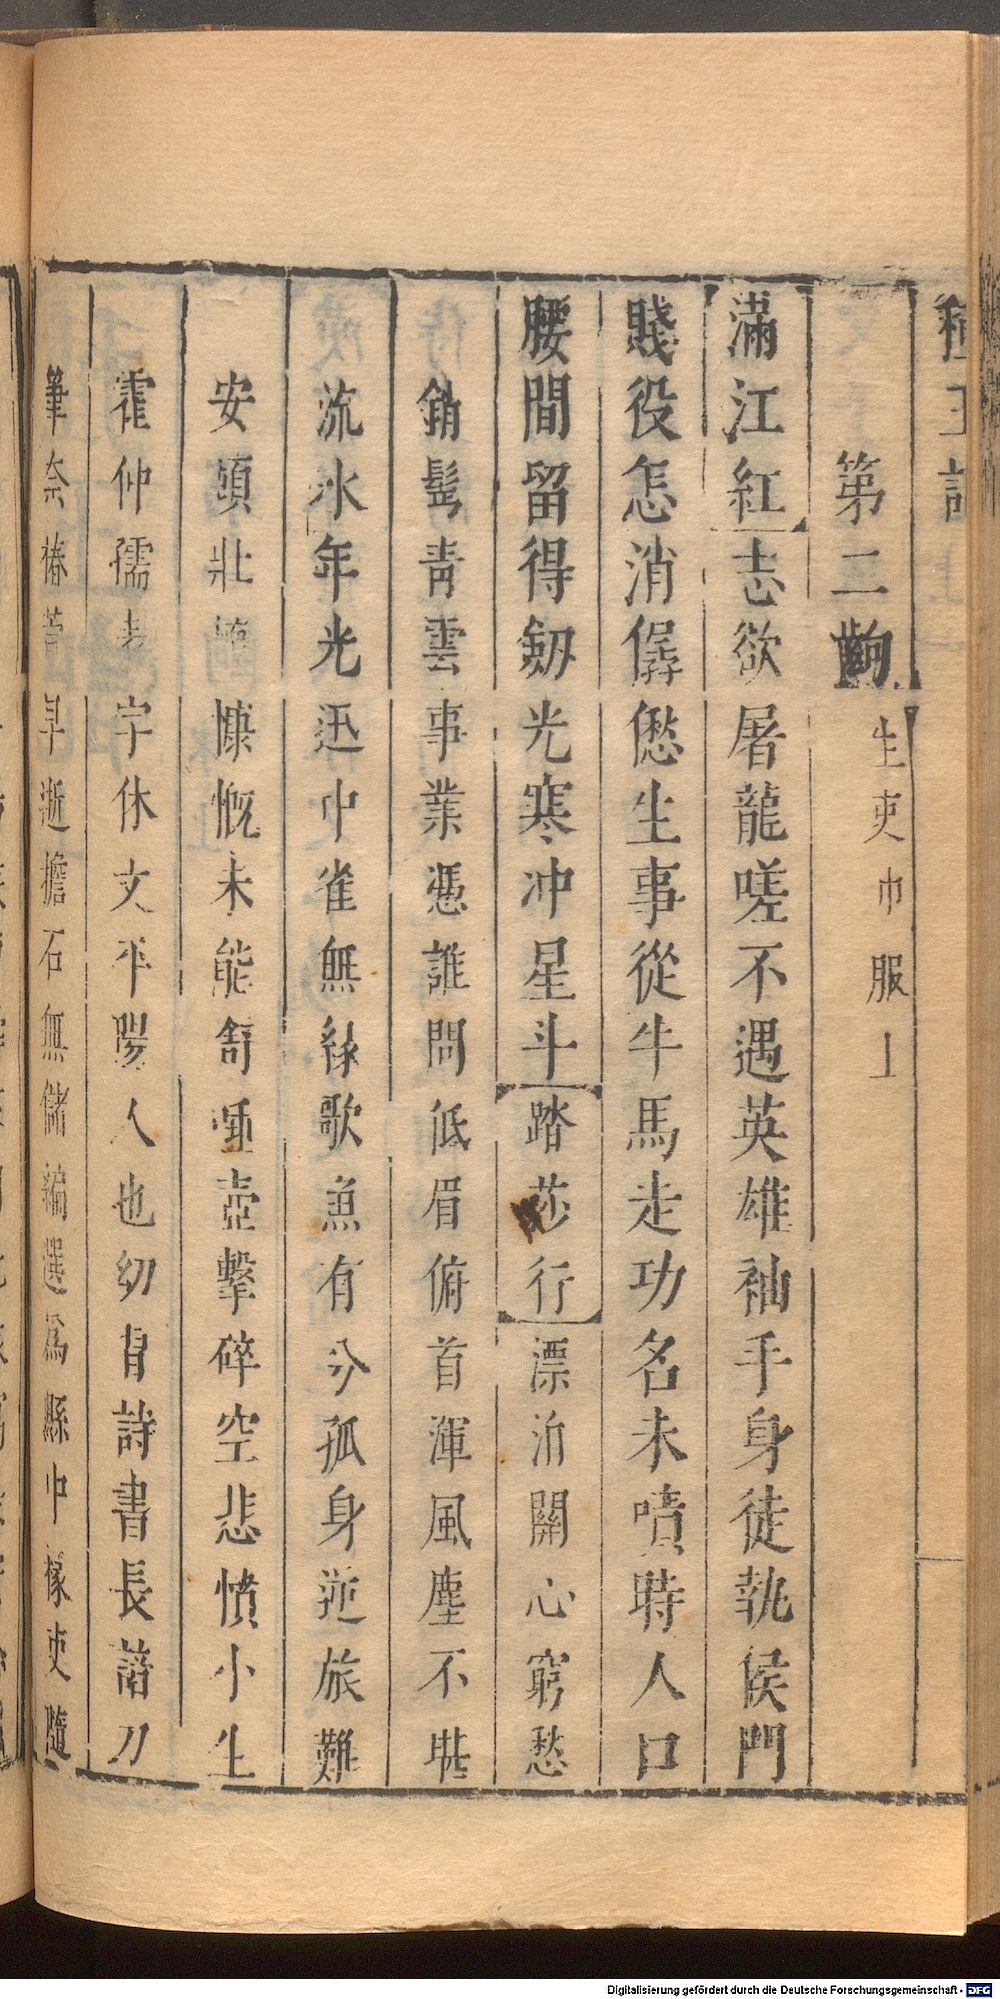 種玉記 上
第二齣
生吏巾服上
滿江紅志欲屠龍嗟不遇英雄袖手身徒執侯門
賤役怎消僝僽生事從牛馬走功名未嘖時人口
腰間留得劒光寒冲星斗踏莎行漂泊關心窮愁
銷髩青雲事業憑誰問低眉俯首渾風塵不堪
流水年光迅中雀無緣歌魚有分孤身逆旅難
安頓壯懷慷慨未能舒唾壺擊碎空悲憤小生
霍仲孺表字休文平陽人也幼習詩書長諳刀
筆奈椿萱早逝擔石無儲編選爲縣中椽吏隨
Digitalisierung gefördert durch die Deutsche Forschungsgemeinschaft - DFG